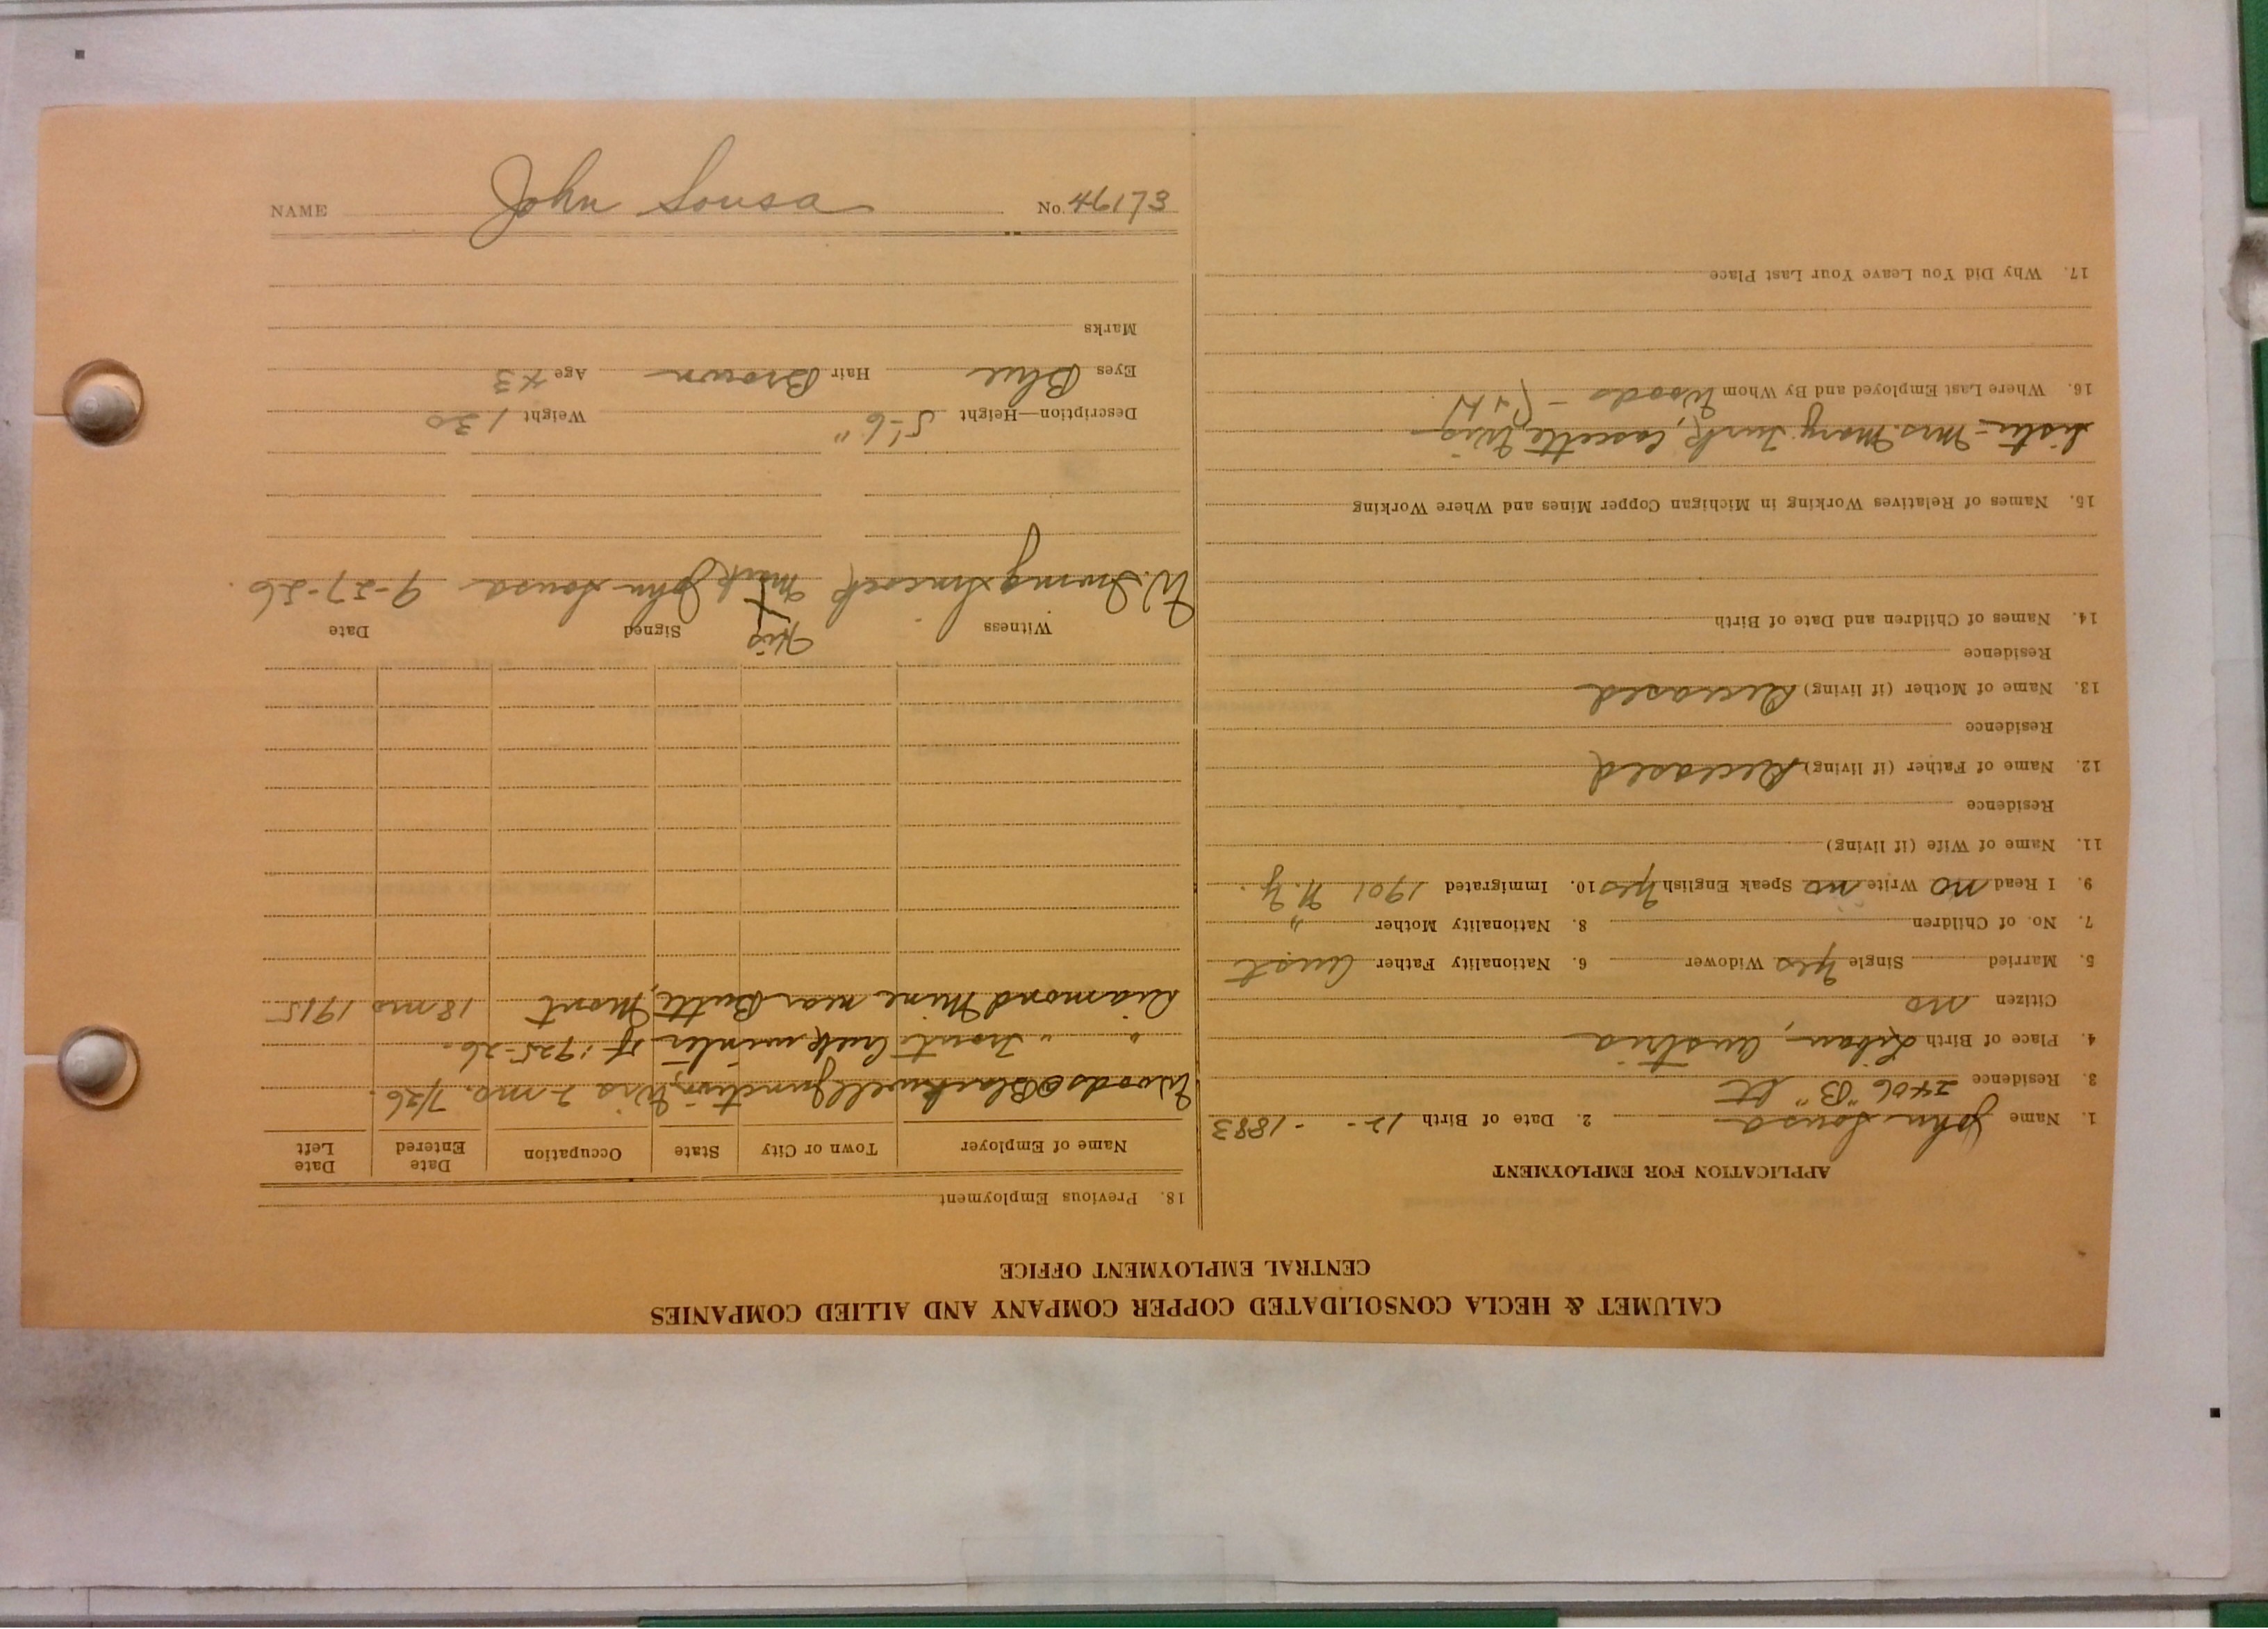 NAME John Sousa No. 46173
CALUMET & HECLA CONSOLIDATED COPPER COMPANY AND ALLIED COMPANIES
CENTRAL EMPLOYMENT OFFICE
APPLICATION FOR EMPLOYMENT
1. Name John Sousa 2. Date of Birth 12- - 1883
3. Residence 2406 "B" St
4. Place of Birth Austria
Citizen no
5. Married Single Yes Widower 6. Nationality Father Aust
7. No. of Children 8. Nationality Mother "
9. I Read no Write no Speak English Yes 10. Immigrated 1901 N.Y.
11. Name of Wife (if living)
Residence
12. Name of Father (if living) Deceased
Residence
13. Name of Mother (if living) Deceased
Residence
14. Names of Children and Date of Birth
15. Names of Relatives Working in Michigan Copper Mines and Where Working
Sister - Mrs. Mary Turk, Wis
16. Where Last Employed and By Whom Woods -
17. Why Did You Leave Your Last Place
18. Previous Employment
Name of Employer Town or City State Occupation Date Entered Date Left
Woods Blackwell Junction, Wis 2 mo. 7/26.
" " Creek winter of 1925-26-
Diamond Mine near Butte, Mont 18 mo 1915
Witness Signed Date
His
W. Irving mark John Sousa 9-27-26.
Description—Height 5'-6" Weight 130
Eyes Blue Hair Brown Age 43
Marks